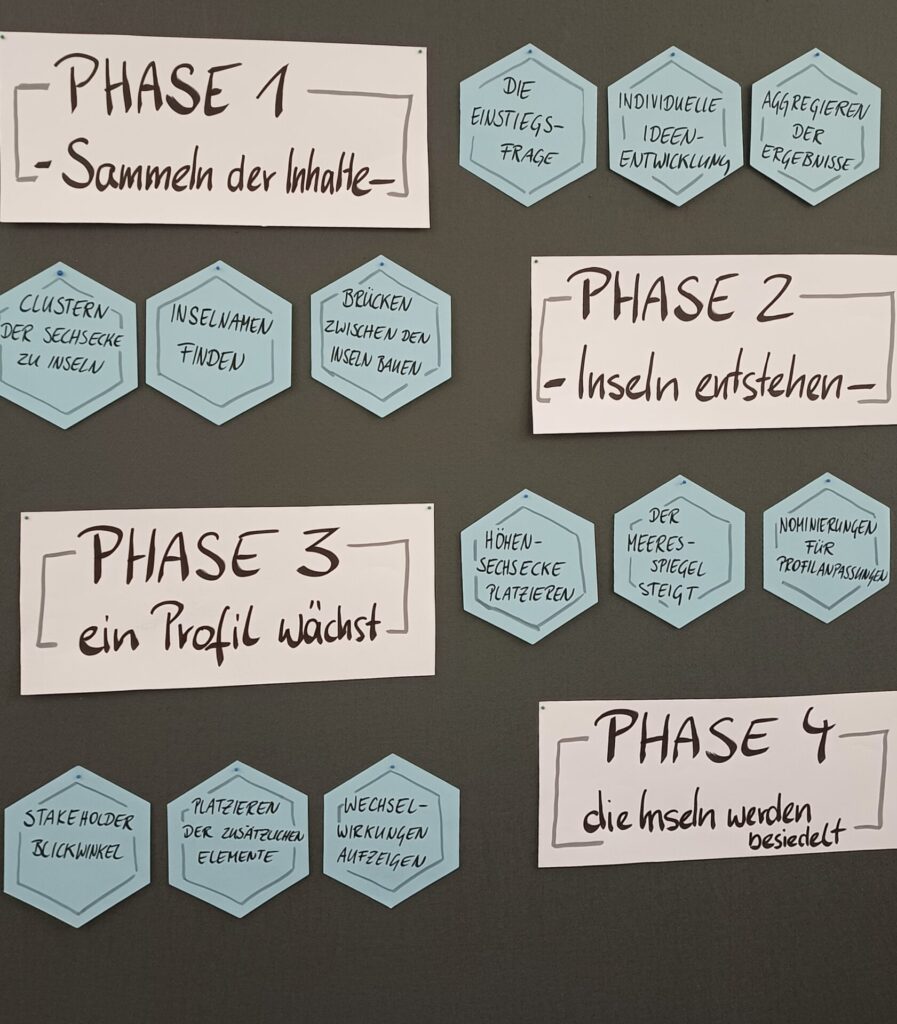 PHASE 1
- Sammeln der Inhalte -
DIE
EINSTIEGS-
FRAGE
INDIVIDUELLE
IDEEN-
ENTWICKLUNG
AGGREGIEREN
DER
ERGEBNISSE
PHASE 2
- Inseln entstehen -
CLUSTERN
DER SECHSECKE
ZU INSELN
INSELNAMEN
FINDEN
BRÜCKEN
ZWISCHEN DEN
INSELN BAUEN
PHASE 3
ein Profil wächst
HÖHEN-
SECHSECKE
PLATZIEREN
DER
MEERES-
SPIEGEL
STEIGT
NOMINIERUNGEN
FÜR
PROFILANPASSUNGEN
PHASE 4
die Inseln werden
besiedelt
STAKEHOLDER
BLICKWINKEL
PLATZIEREN
DER ZUSÄTZLICHEN
ELEMENTE
WECHSEL-
WIRKUNGEN
AUFZEIGEN